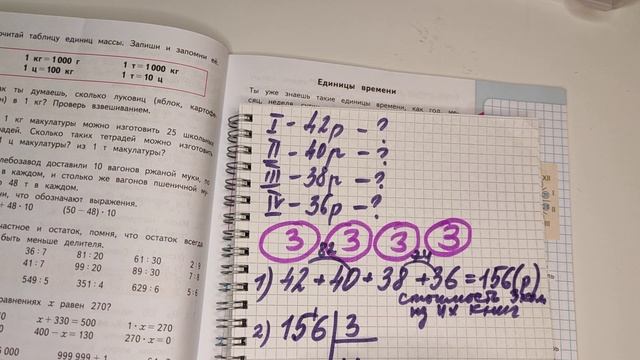 очитай таблицу единиц массы. Запиши и запомни её.
1 кг = 1000 г 1 т = 1000 кг
1 ц = 100 кг 1 т = 10 ц
ак ты думаешь, сколько луковиц (яблок, картофе-
н) в 1 кг? Проверь взвешиванием.
1 кг макулатуры можно изготовить 25 школьных
радей. Сколько таких тетрадей можно изготовить
1 ц макулатуры? из 1 т макулатуры?
лебозавод доставили 10 вагонов ржаной муки, по
в каждом, и столько же вагонов пшеничной му-
о 48 т в каждом.
ни, что обозначают выражения.
+ 48 · 10 (50 − 48) · 10
частное и остаток, помня, что остаток всегда
быть меньше делителя.
36 : 7 81 : 20 61 : 30 2 : 9
41 : 7 99 : 20 89 : 30 7 : 8
549 : 5 351 : 4 629 : 6 5 : 6
равнениях x равен 270?
x + 330 = 500 1 · x = 270
400 − x = 130 270 · x = 0
56 000 999 999 + 1
Единицы времени
Ты уже знаешь такие единицы времени, как год, ме-
сяц, неделя
I - 42р - ?
II - 40р - ?
III - 38р - ?
IV - 36р - ?
3 3 3 3
82 74
1) 42 + 40 + 38 + 36 = 156 (р)
стоимость 3 экз
из 4х книг
2) 156 3
XII
I
II
III